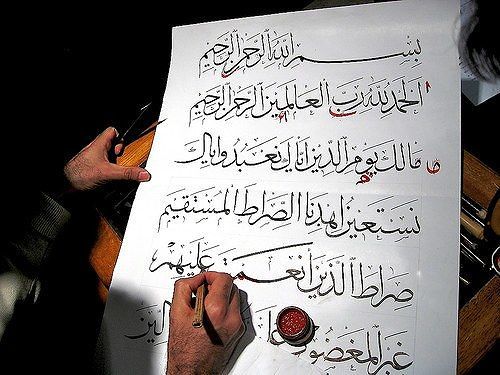 بسم الله الرحمن الرحيم
الحمد لله رب العالمين الرحمن الرحيم
مالك يوم الدين اياك نعبد واياك
نستعين اهدنا الصراط المستقيم
صراط الذين أنعمت عليهم
غير المغضوب